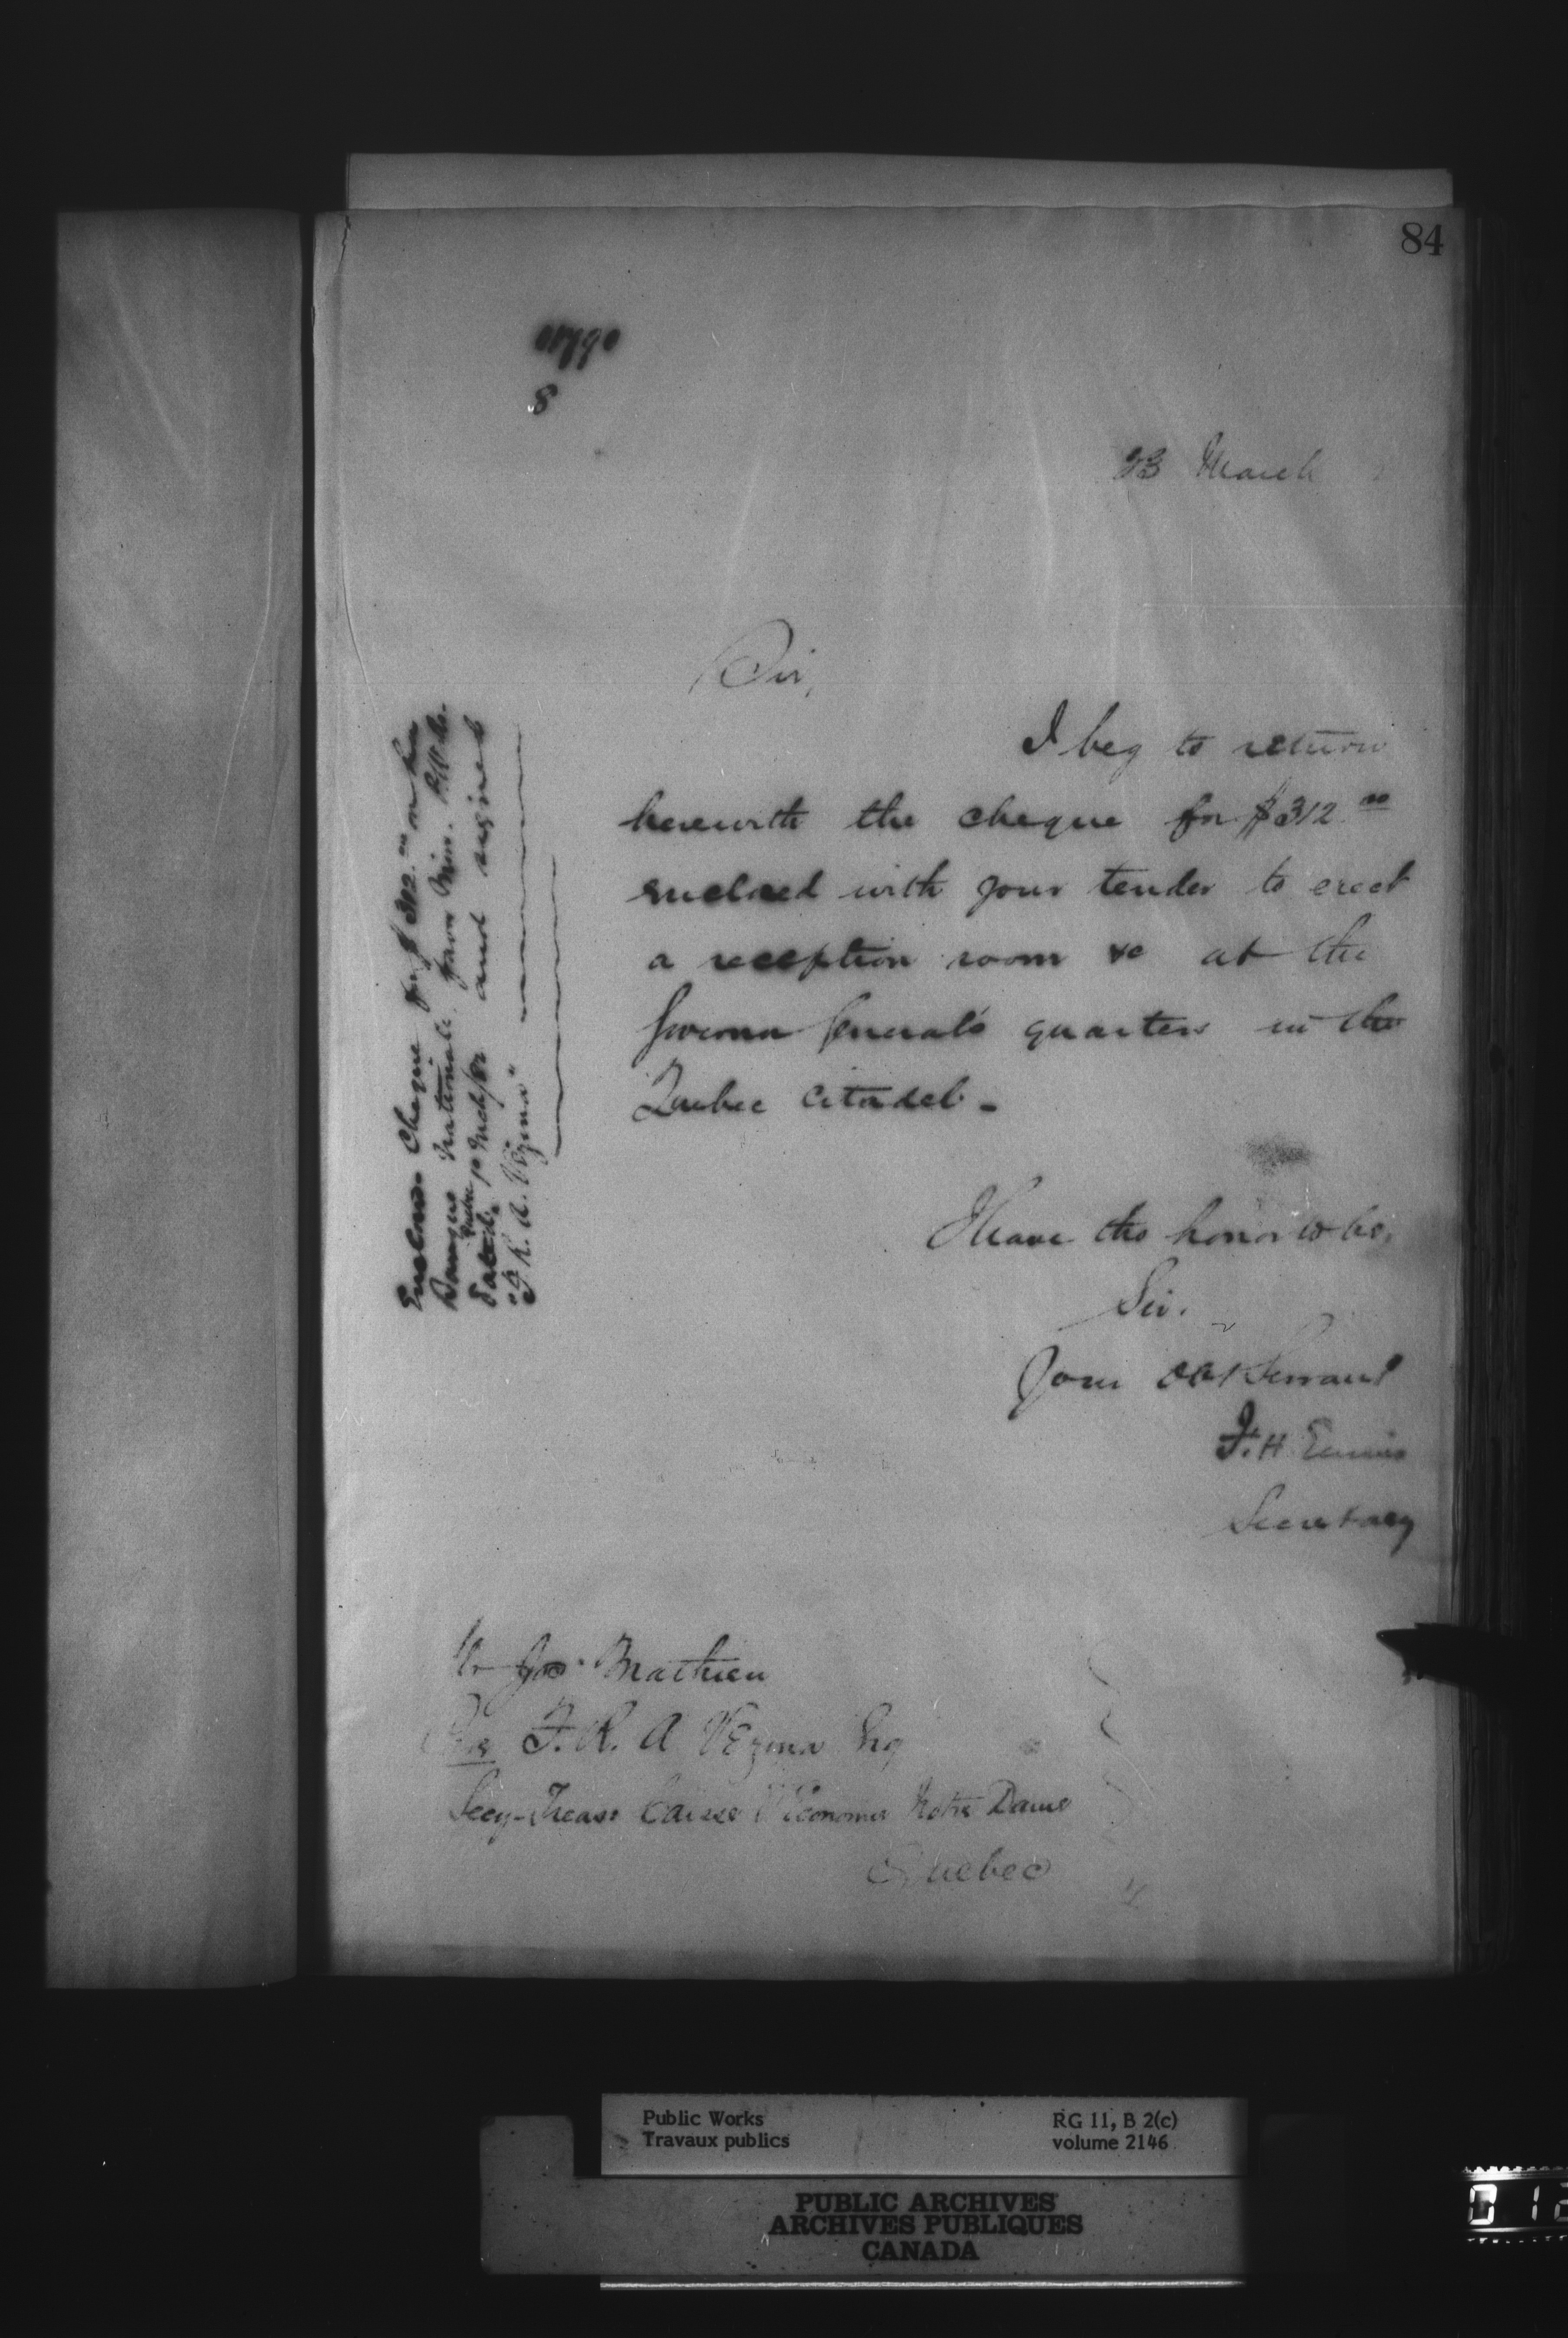 84
8
23 March
Sir,
I beg to return
herewith the cheque for $312.00
enclosed with your tender to erect
a reception room &c at the
Governor General's quarters in the
Quebec Citadel.
I have the honor to be,
Sir.
Your Obt Servant
F. H. Ennis
Secretary
Enclosure Cheque for $312.00 on La
Banque Nationale, favor Min. P.W. &c.
dated Quebec and signed
"F. R. A. Vézina"
Mr Jos. Mathieu
F. R. A Vézina Esq
Secy-Treas Caisse d'Economie Notre Dame
Quebec
Public Works
Travaux publics
RG 11, B 2(c)
volume 2146
PUBLIC ARCHIVES
ARCHIVES PUBLIQUES
CANADA